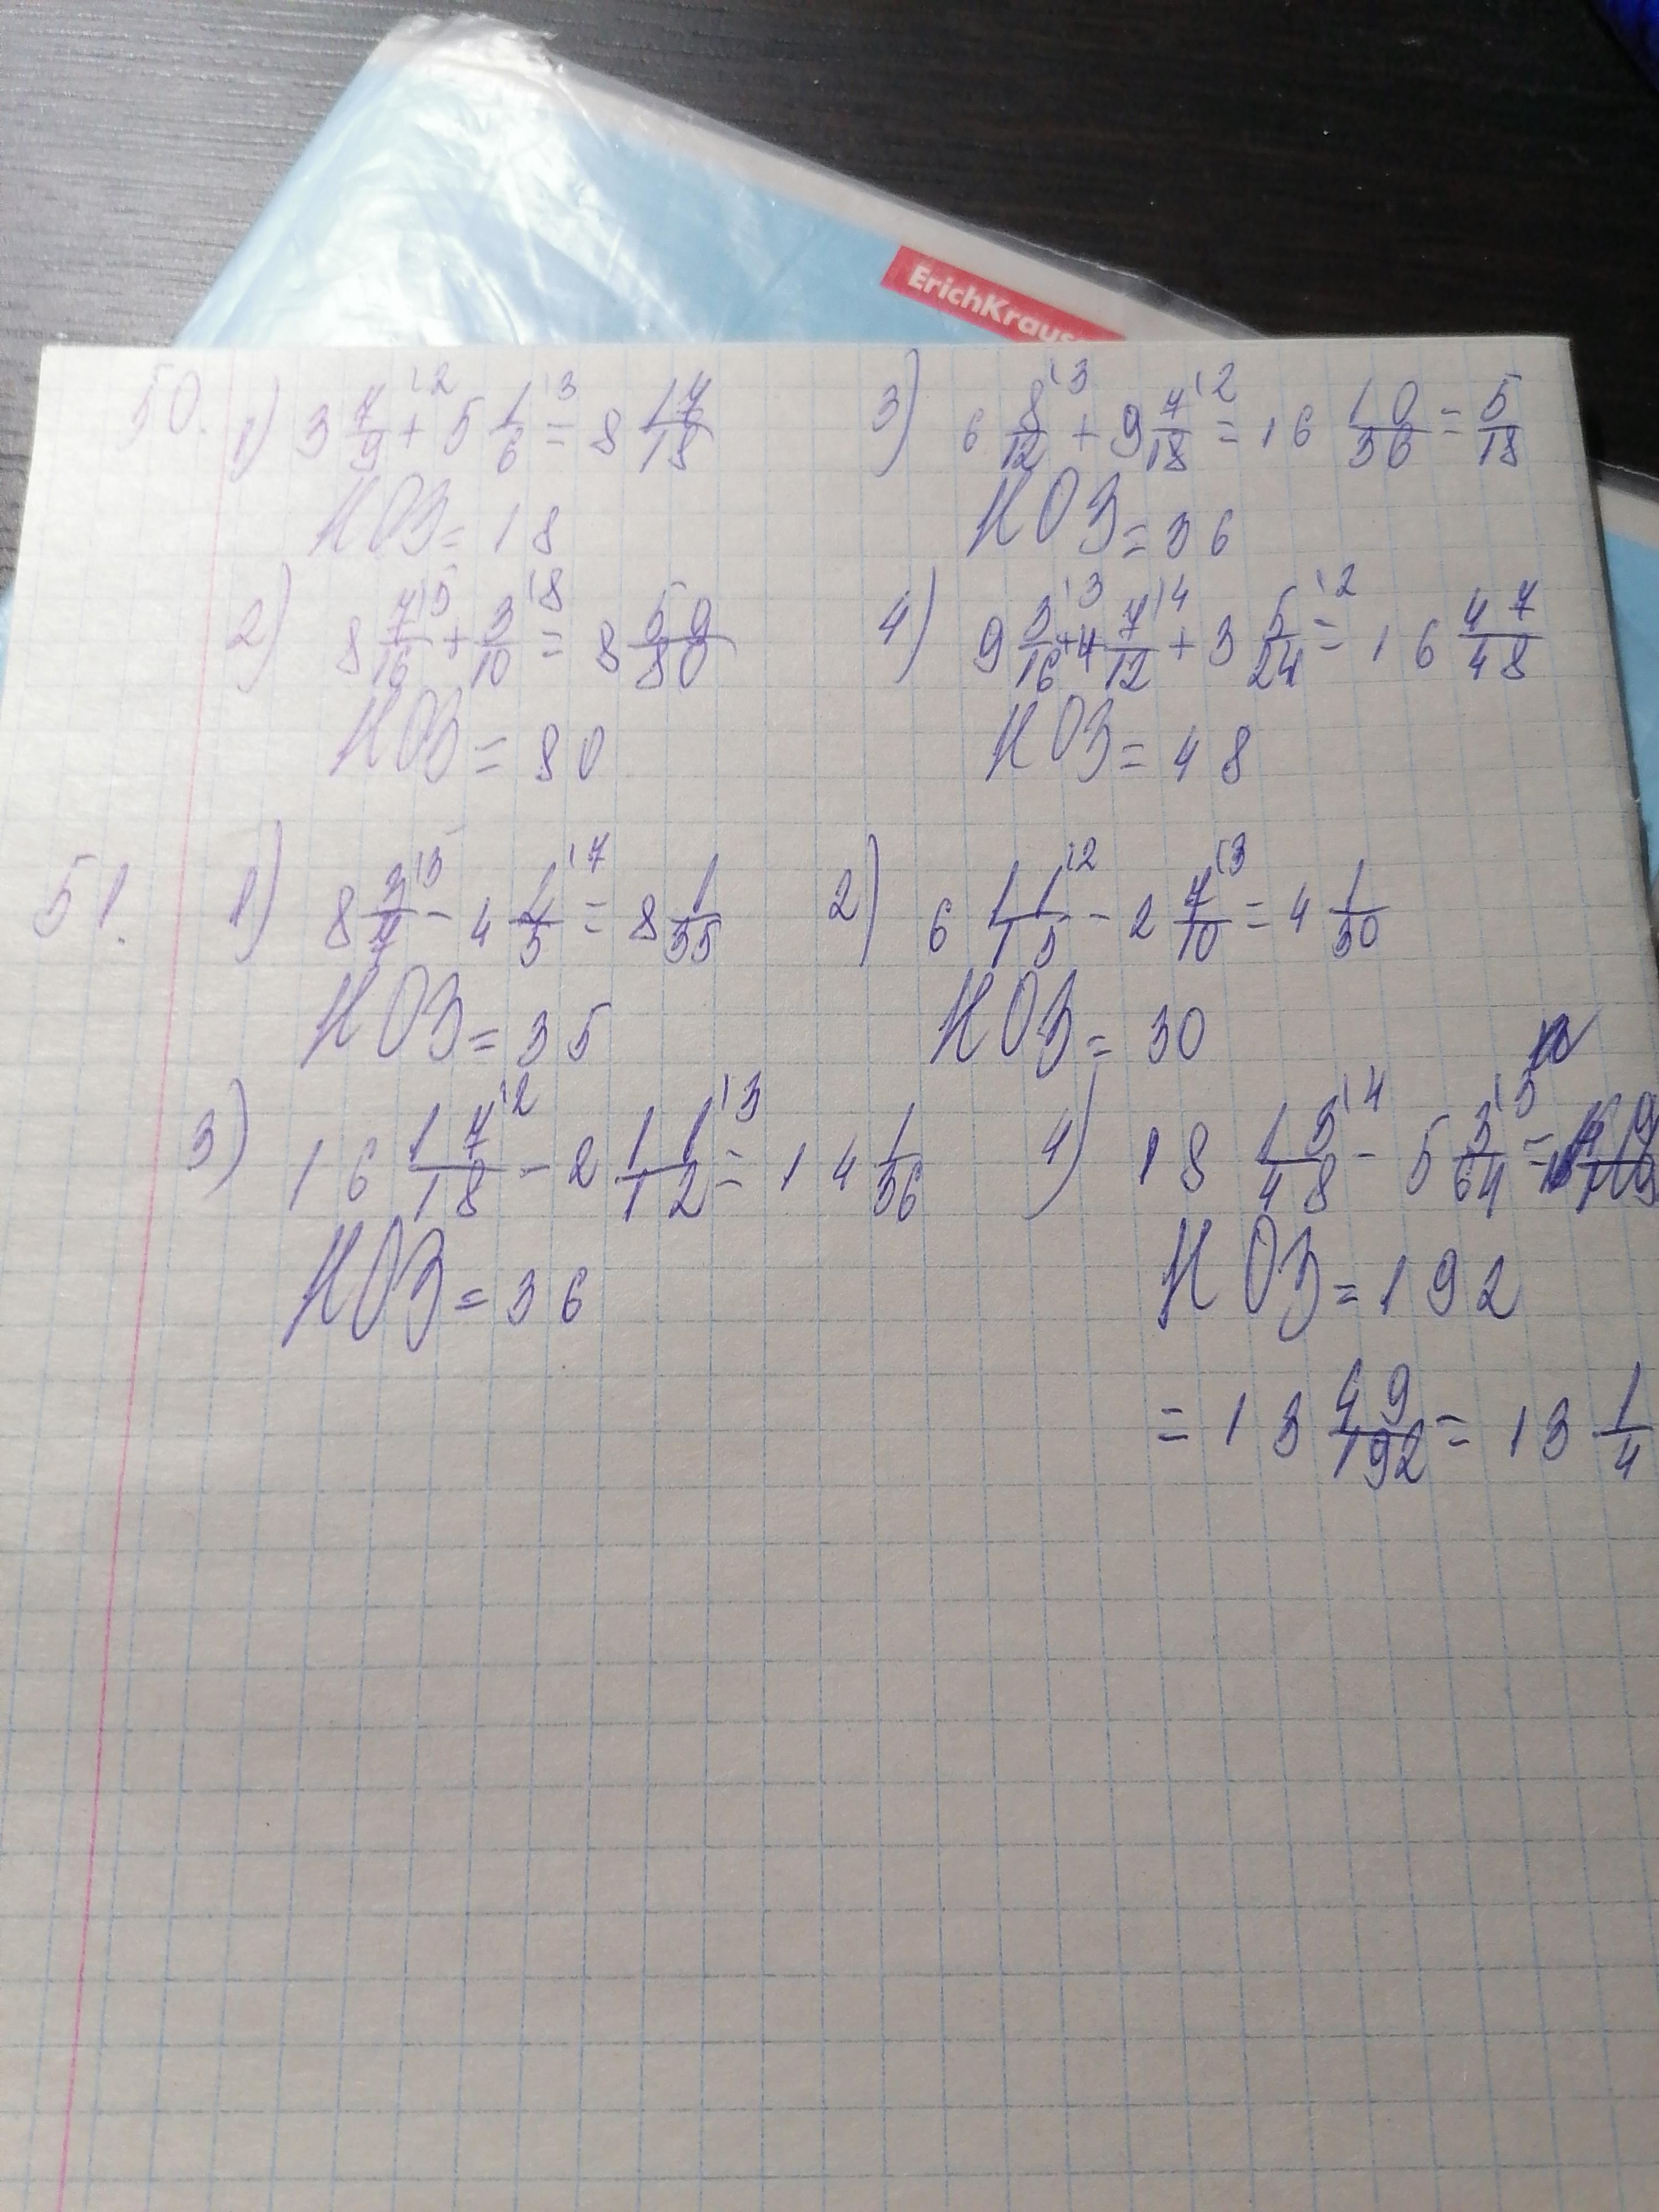 ErichKraus
50. 1) 3 7/9 \2 + 5 1/6 \3 = 8 17/18
НОЗ = 18
2) 8 7/16 \5 + 3/10 \8 = 8 59/80
НОЗ = 80
3) 6 8/12 \3 + 9 7/18 \2 = 16 10/36 = 5/18
НОЗ = 36
4) 9 3/16 \3 + 4 7/12 \4 + 3 5/24 \2 = 16 47/48
НОЗ = 48
51. 1) 8 2/7 \5 - 4 1/5 \7 = 8 1/35
НОЗ = 35
2) 6 11/15 \2 - 2 7/10 \3 = 4 1/30
НОЗ = 30
3) 16 17/18 \2 - 2 11/12 \3 = 14 1/36
НОЗ = 36
4) 18 15/48 \4 - 5 3/64 \3 =
НОЗ = 192
= 13 49/192 = 13 1/4